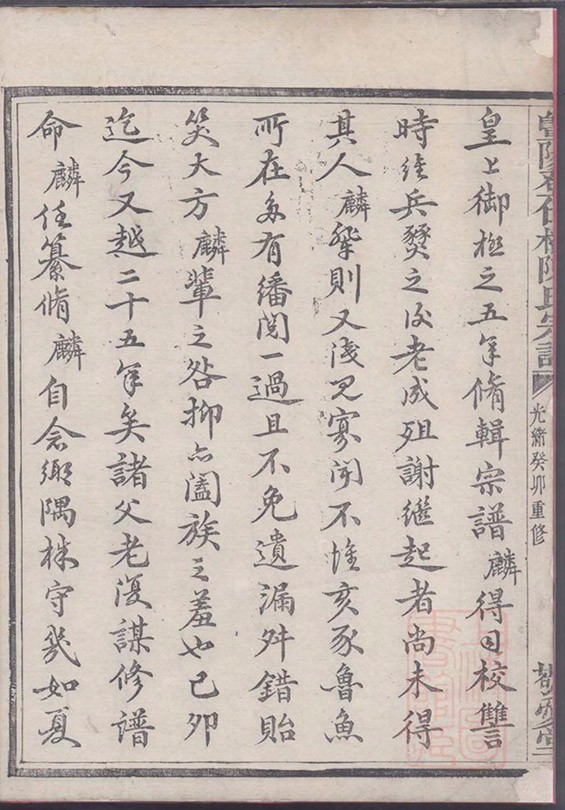 陳氏宗譜
光緒癸卯重修
皇上御極之五年脩輯宗譜麟得司校讐
時經兵燹之後老成殂謝繼起者尚未得
其人麟則又淺見寡聞不惟亥豕魯魚
所在多有繙閱一過且不免遺漏舛錯貽
笑大方麟輩之咎抑亦闔族之羞也已卯
迄今又越二十五年矣諸父老復謀修譜
命麟任纂脩麟自念鄉隅株守幾如夏